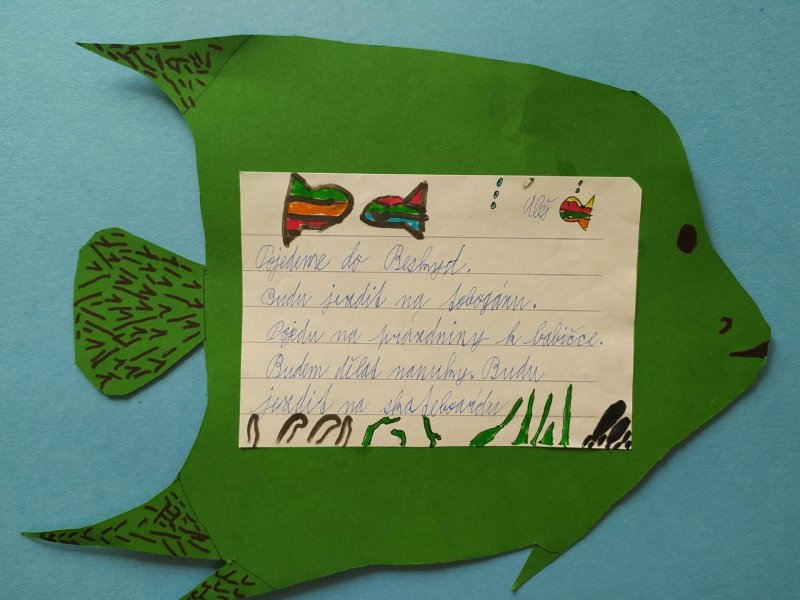 Aleš
Pojedeme do Beskyd.
Budu jezdit na tobogánu.
Pojedu na prázdniny k babičce.
Budem dělat nanuky. Budu
jezdit na skateboardu